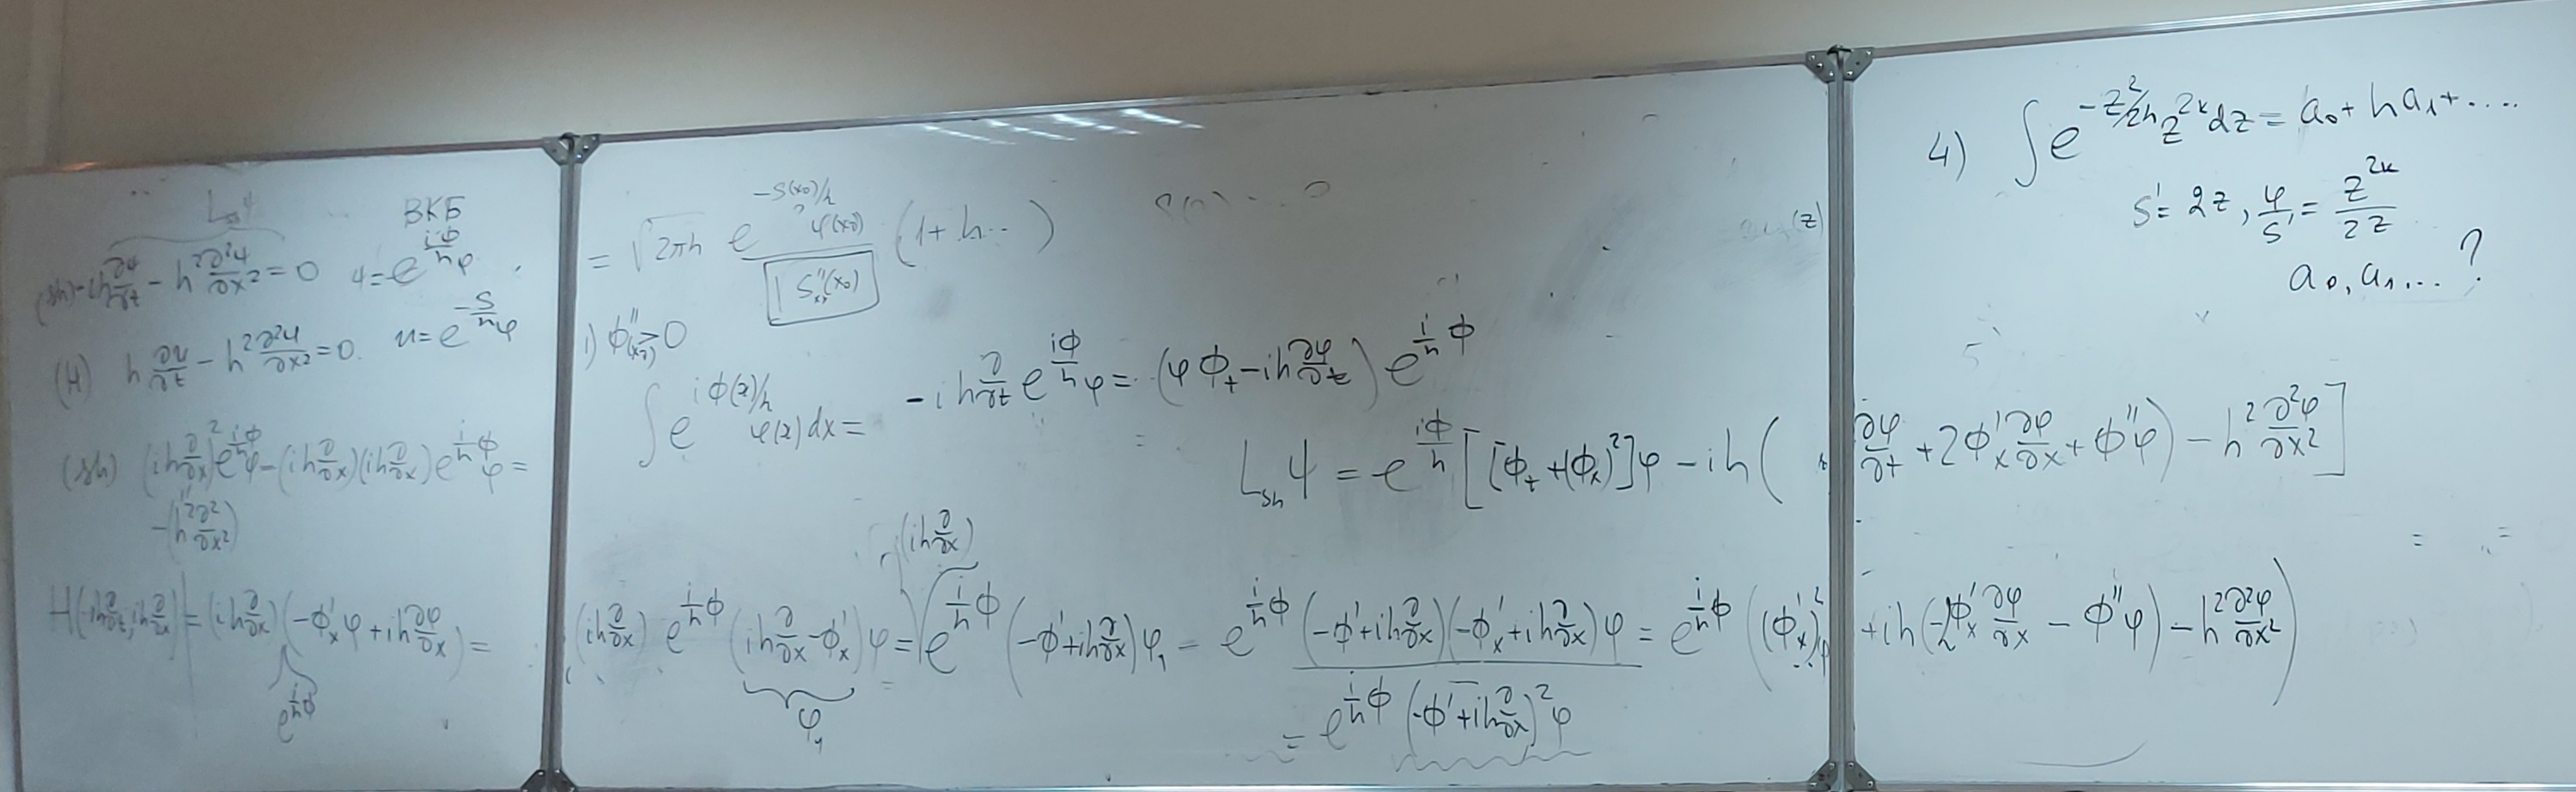 L_{sh}ψ
ВКБ
(sh) -ih ∂ψ/∂t - h² ∂²ψ/∂x² = 0   ψ = e^{iϕ/h} φ
(H) h ∂u/∂t - h² ∂²u/∂x² = 0.   u = e^{-S/h} φ
(sh) (ih ∂/∂x)² e^{iϕ/h} φ = (ih ∂/∂x)(ih ∂/∂x) e^{i/h ϕ} φ =
-(h² ∂²/∂x²)
H(-ih ∂/∂t, ih ∂/∂x) = (ih ∂/∂x)(-ϕ'_x φ + ih ∂φ/∂x) =
e^{i/h ϕ}
= √2πh e^{-S(x₀)/h} φ(x₀) / √S''_{xx}(x₀) (1 + h...)
1) ϕ''(x₀) > 0
∫ e^{iϕ(x)/h} φ(x) dx =
-ih ∂/∂t e^{iϕ/h} φ = (φ ϕ_t - ih ∂φ/∂t) e^{i/h ϕ}
L_{sh} ψ = e^{iϕ/h} [[ϕ_t + (ϕ_x)²]φ - ih(∂φ/∂t + 2ϕ'_x ∂φ/∂x + ϕ''φ) - h² ∂²φ/∂x²]
(ih ∂/∂x)
(ih ∂/∂x) e^{i/h ϕ} (ih ∂/∂x - ϕ'_x) φ = e^{i/h ϕ} (-ϕ' + ih ∂/∂x) φ₁ = e^{i/h ϕ} (-ϕ' + ih ∂/∂x)(-ϕ'_x + ih ∂/∂x) φ = e^{i/h ϕ} ((ϕ'_x)² φ + ih(-2ϕ'_x ∂φ/∂x - ϕ''φ) - h² ∂²φ/∂x²)
φ₁
= e^{i/h ϕ} (-ϕ' + ih ∂/∂x)² φ
(z)
4) ∫ e^{-z²/2h} z^{2k} dz = a₀ + h a₁ + ....
S' = 2z, φ/S' = z^{2k}/2z
a₀, a₁ ... ?